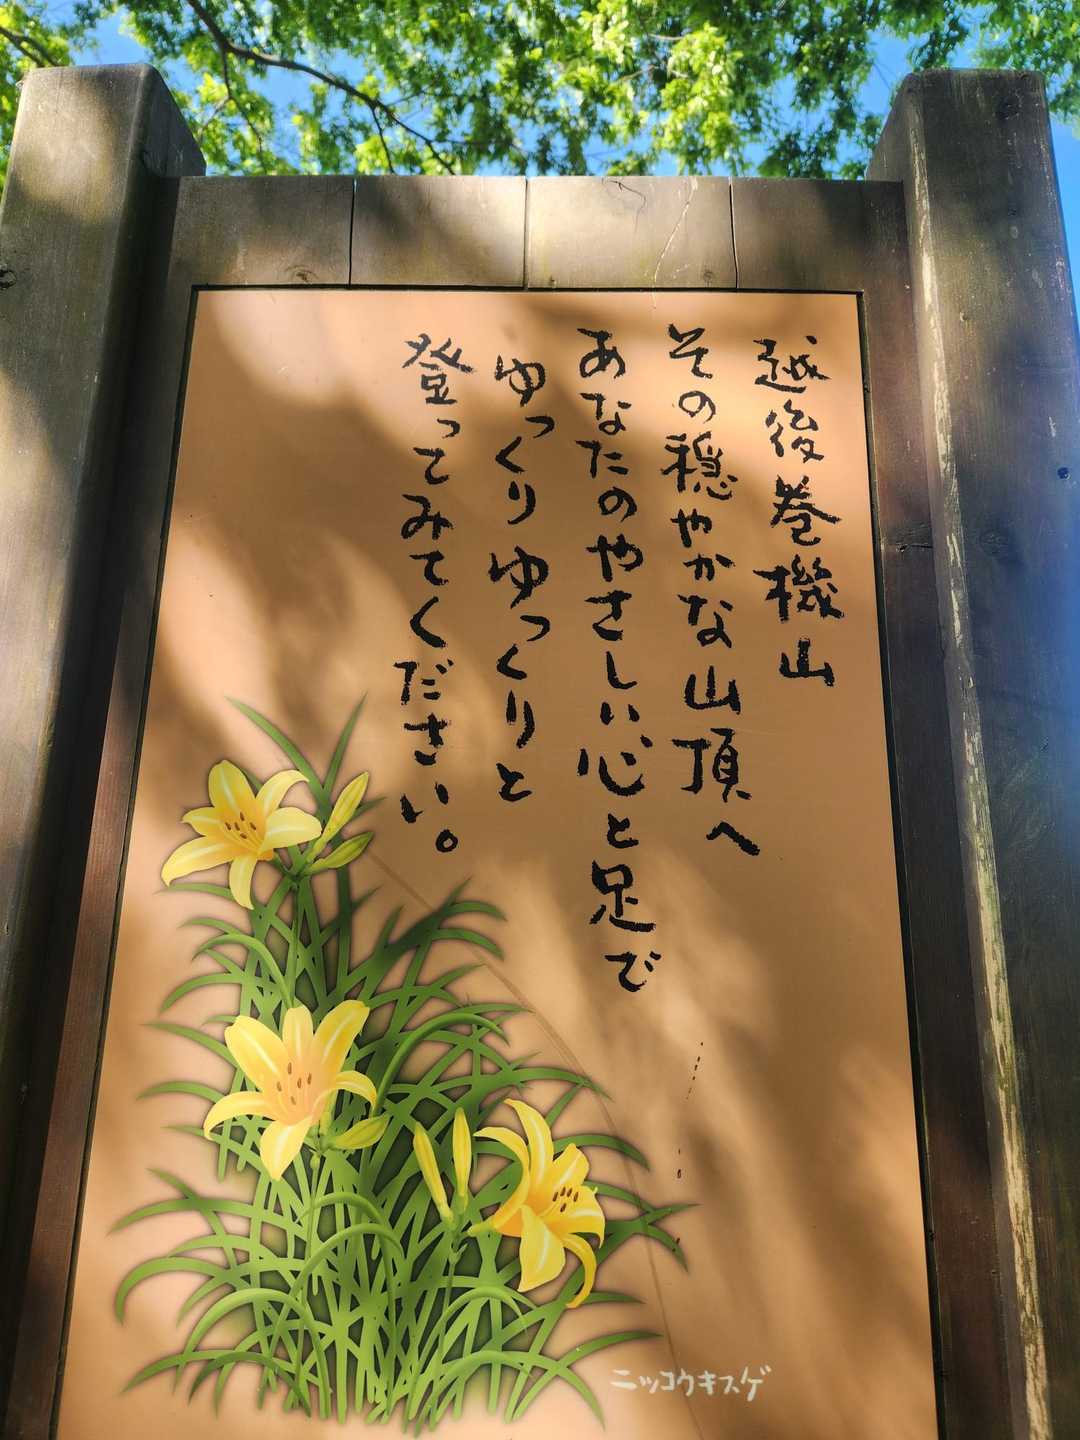 越後巻機山
その穏やかな山頂へ
あなたのやさしい心と足で
ゆっくりゆっくりと
登ってみてください。
ニッコウキスゲ